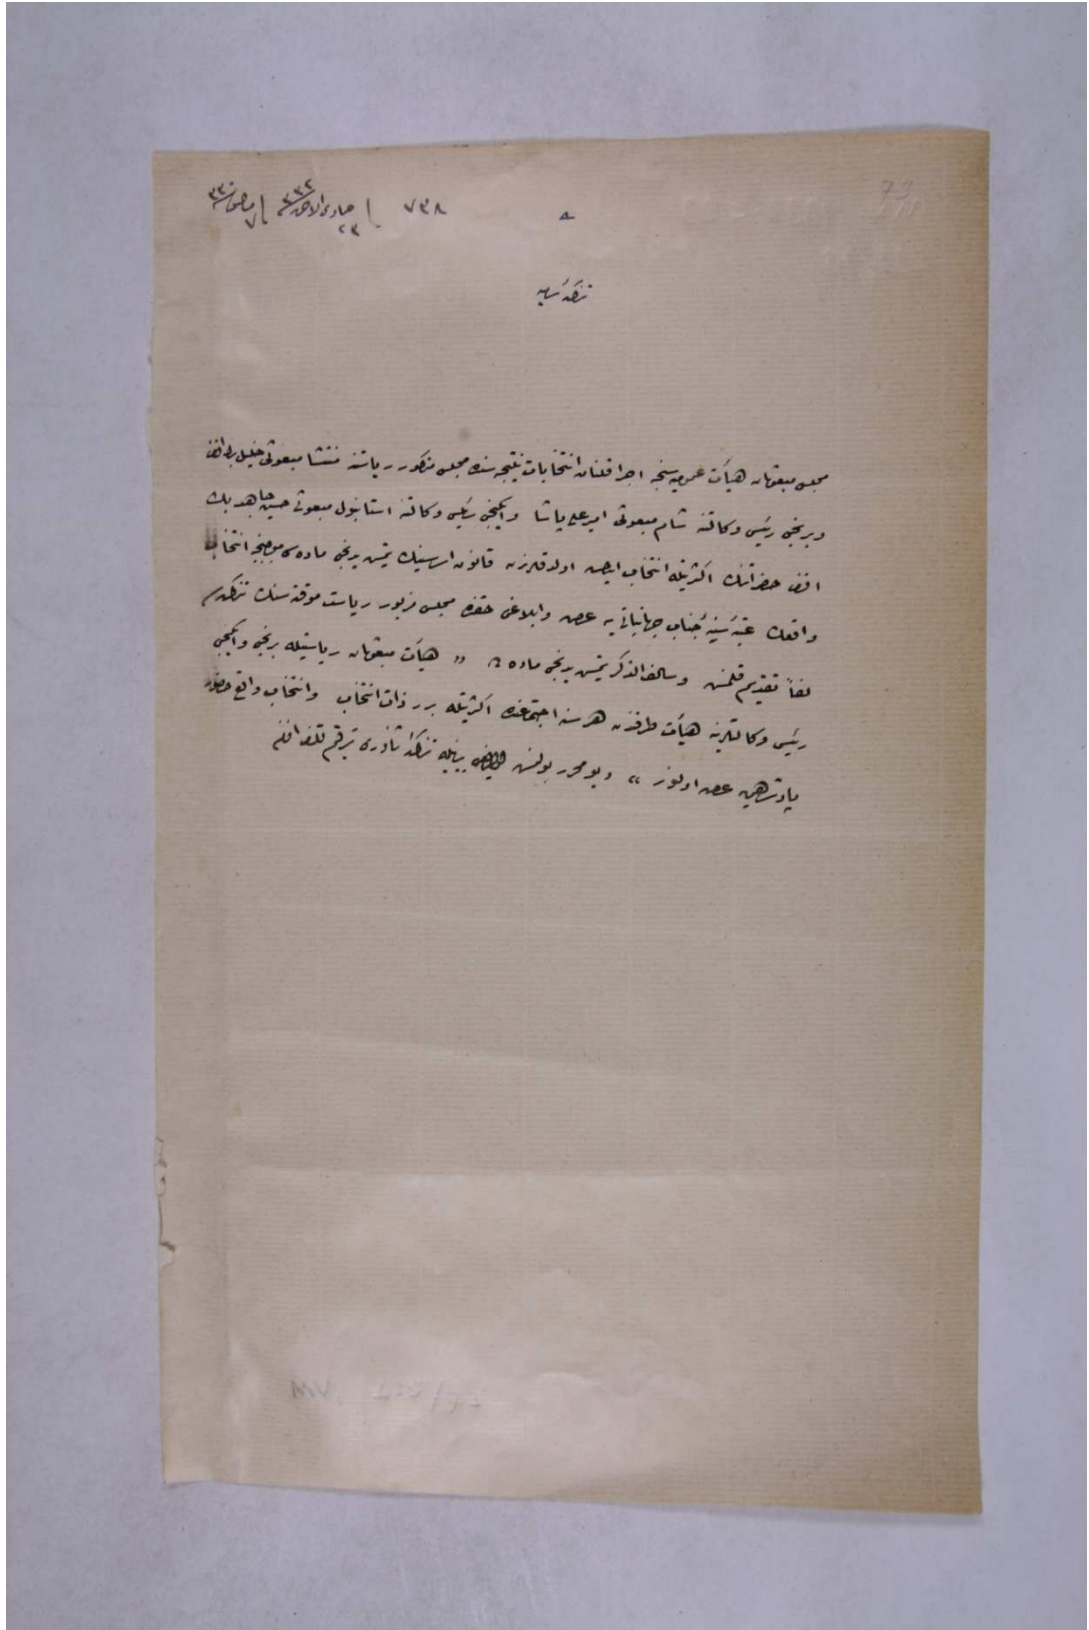 ٧٣٨ ٢٣ جمادى الآخره ٣٣٢ ٧ مايس ٣٣٠
٨
73
تذكرهٔ ساميه
مجلس مبعوثان هيأت عموميه سنجه اجرا قلنان انتخابات نتيجه سنده مجلس مذكور رياستنه منتشا مبعوثى خليل بك افندى
وبرنجى رئيس وكالتنه شام مبعوثى امير على پاشا وايكنجى رئيس وكالتنه استانبول مبعوثى حسين جاهد بك
افندى حضراتنك اكثريتله انتخاب ايدلمش اولدقلرندن قانون اساسينك يتمش يدنجى ماده سى موجبنجه انتخاب
واقعك عتبهٔ سنيهٔ جناب جهانبانى يه عرض وابلاغى حقنده مجلس مزبور رياست موقته سنك تذكره سى
لفاً تقديم قلنمش وسالف الذكر يتمش يدنجى ماده ده « هيأت مبعوثان رياستيله برنجى وايكنجى
رئيس وكالتلرينه هيأت طرفندن هر سنه اجتماعنده اكثريتله برر ذات انتخاب وانتخاب واقع حضور
پادشاهى يه عرض اولنور » ديو محرر بولنمش بيانيله تذكرهٔ ثناورى ترقيم قلندى افندم